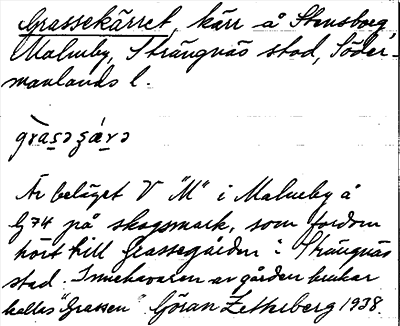 Grassekärret, kärr å Stensborg,
Malmby, Strängnäs stad, Söder-
manlands l.
Är beläget V "M" i Malmby å
bj 74 på skogsmark, som fordom
hört till Grassegården i Strängnäs
stad. Innehavaren av gården brukar
kallas "Grassen". Göran Zetherberg 1938.